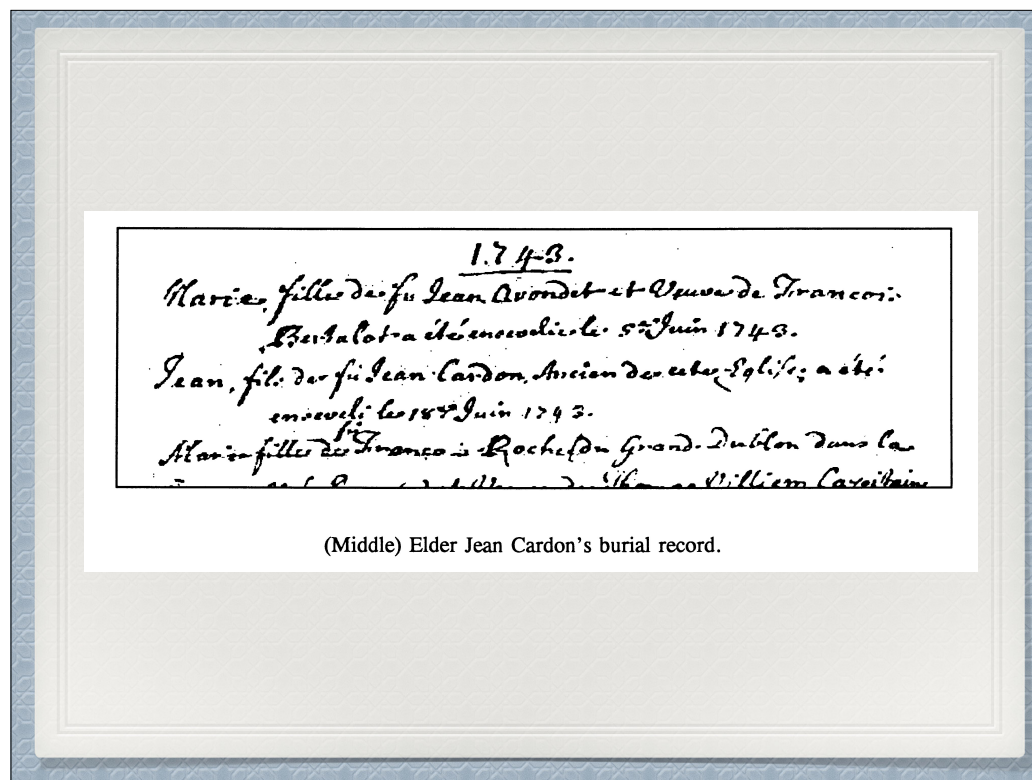 1.7.4.3.
Marie, fille de fû Jean Avondet et Veuve de Francois
Bertalot a été ensevelie le 5me Juin 1743.
Jean, fils de fû Jean Cardon, Ancien de cette Eglise, a été
enseveli le 18me Juin 1743.
fû
Marie fille de Francois Roche du Grand Dublon dans la
Thomas Villiem Capitaine
(Middle) Elder Jean Cardon's burial record.